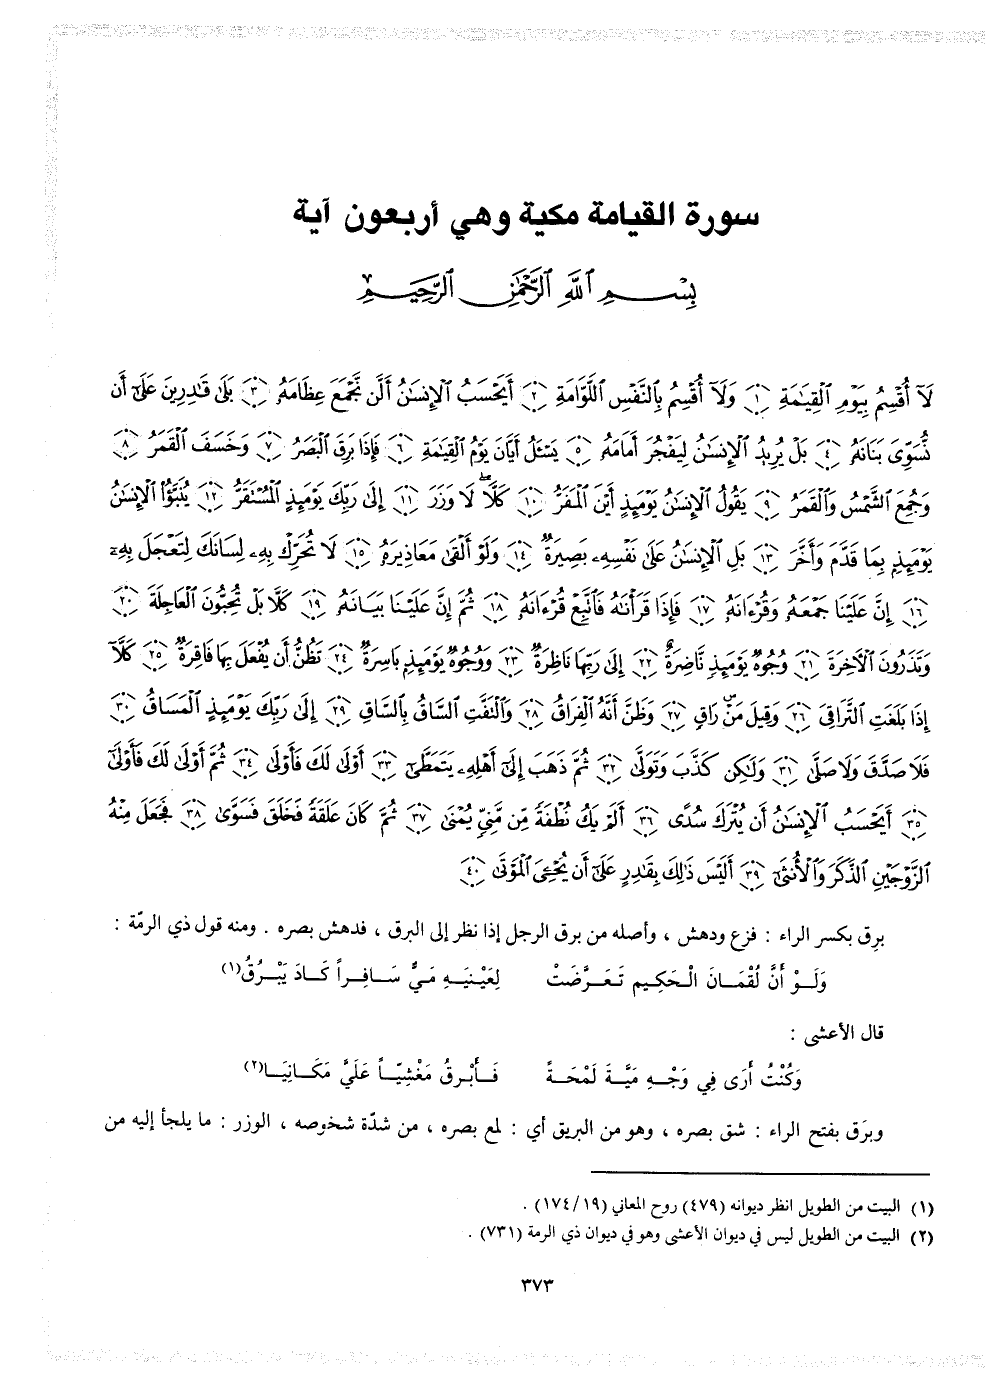 سورة القيامة مكية وهي أربعون آية
بِسْمِ ٱللَّهِ ٱلرَّحْمَٰنِ ٱلرَّحِيمِ
لَآ أُقْسِمُ بِيَوْمِ ٱلْقِيَٰمَةِ ﴿١﴾ وَلَآ أُقْسِمُ بِٱلنَّفْسِ ٱللَّوَّامَةِ ﴿٢﴾ أَيَحْسَبُ ٱلْإِنسَٰنُ أَلَّن نَّجْمَعَ عِظَامَهُۥ ﴿٣﴾ بَلَىٰ قَٰدِرِينَ عَلَىٰٓ أَن
نُّسَوِّىَ بَنَانَهُۥ ﴿٤﴾ بَلْ يُرِيدُ ٱلْإِنسَٰنُ لِيَفْجُرَ أَمَامَهُۥ ﴿٥﴾ يَسْـَٔلُ أَيَّانَ يَوْمُ ٱلْقِيَٰمَةِ ﴿٦﴾ فَإِذَا بَرِقَ ٱلْبَصَرُ ﴿٧﴾ وَخَسَفَ ٱلْقَمَرُ ﴿٨﴾
وَجُمِعَ ٱلشَّمْسُ وَٱلْقَمَرُ ﴿٩﴾ يَقُولُ ٱلْإِنسَٰنُ يَوْمَئِذٍ أَيْنَ ٱلْمَفَرُّ ﴿١٠﴾ كَلَّا لَا وَزَرَ ﴿١١﴾ إِلَىٰ رَبِّكَ يَوْمَئِذٍ ٱلْمُسْتَقَرُّ ﴿١٢﴾ يُنَبَّؤُا۟ ٱلْإِنسَٰنُ
يَوْمَئِذٍۭ بِمَا قَدَّمَ وَأَخَّرَ ﴿١٣﴾ بَلِ ٱلْإِنسَٰنُ عَلَىٰ نَفْسِهِۦ بَصِيرَةٌ ﴿١٤﴾ وَلَوْ أَلْقَىٰ مَعَاذِيرَهُۥ ﴿١٥﴾ لَا تُحَرِّكْ بِهِۦ لِسَانَكَ لِتَعْجَلَ بِهِۦٓ
﴿١٦﴾ إِنَّ عَلَيْنَا جَمْعَهُۥ وَقُرْءَانَهُۥ ﴿١٧﴾ فَإِذَا قَرَأْنَٰهُ فَٱتَّبِعْ قُرْءَانَهُۥ ﴿١٨﴾ ثُمَّ إِنَّ عَلَيْنَا بَيَانَهُۥ ﴿١٩﴾ كَلَّا بَلْ تُحِبُّونَ ٱلْعَاجِلَةَ ﴿٢٠﴾
وَتَذَرُونَ ٱلْآخِرَةَ ﴿٢١﴾ وُجُوهٌ يَوْمَئِذٍ نَّاضِرَةٌ ﴿٢٢﴾ إِلَىٰ رَبِّهَا نَاظِرَةٌ ﴿٢٣﴾ وَوُجُوهٌ يَوْمَئِذٍۭ بَاسِرَةٌ ﴿٢٤﴾ تَظُنُّ أَن يُفْعَلَ بِهَا فَاقِرَةٌ ﴿٢٥﴾ كَلَّآ
إِذَا بَلَغَتِ ٱلتَّرَاقِىَ ﴿٢٦﴾ وَقِيلَ مَنْ رَاقٍ ﴿٢٧﴾ وَظَنَّ أَنَّهُ ٱلْفِرَاقُ ﴿٢٨﴾ وَٱلْتَفَّتِ ٱلسَّاقُ بِٱلسَّاقِ ﴿٢٩﴾ إِلَىٰ رَبِّكَ يَوْمَئِذٍ ٱلْمَسَاقُ ﴿٣٠﴾
فَلَا صَدَّقَ وَلَا صَلَّىٰ ﴿٣١﴾ وَلَٰكِن كَذَّبَ وَتَوَلَّىٰ ﴿٣٢﴾ ثُمَّ ذَهَبَ إِلَىٰٓ أَهْلِهِۦ يَتَمَطَّىٰٓ ﴿٣٣﴾ أَوْلَىٰ لَكَ فَأَوْلَىٰ ﴿٣٤﴾ ثُمَّ أَوْلَىٰ لَكَ فَأَوْلَىٰٓ
﴿٣٥﴾ أَيَحْسَبُ ٱلْإِنسَٰنُ أَن يُتْرَكَ سُدًى ﴿٣٦﴾ أَلَمْ يَكُ نُطْفَةً مِّن مَّنِىٍّ يُمْنَىٰ ﴿٣٧﴾ ثُمَّ كَانَ عَلَقَةً فَخَلَقَ فَسَوَّىٰ ﴿٣٨﴾ فَجَعَلَ مِنْهُ
ٱلزَّوْجَيْنِ ٱلذَّكَرَ وَٱلْأُنثَىٰٓ ﴿٣٩﴾ أَلَيْسَ ذَٰلِكَ بِقَٰدِرٍ عَلَىٰٓ أَن يُحْۦِىَ ٱلْمَوْتَىٰ ﴿٤٠﴾
برِق بكسر الراء : فزع ودهش ، وأصله من برق الرجل إذا نظر إلى البرق ، فدهش بصره . ومنه قول ذي الرمّة :
وَلَـوْ أَنَّ لُقْمَـانَ الْحَكِيـمِ تَعَـرَّضَتْ لِعَيْنَيـهِ مَـيٌّ سَـافِـراً كَـادَ يَبْـرُقُ(١)
قال الأعشى :
وَكُنْتُ أَرَى فِي وَجْـهِ مَيَّـةَ لَمْحَـةً فَـأَبْـرِقُ مَغْشِيّـاً عَلَيَّ مَكَـانِيَـا(٢)
وبرَق بفتح الراء : شق بصره ، وهو من البريق أي : لمع بصره ، من شدّة شخوصه ، الوزر : ما يلجأ إليه من
(١) البيت من الطويل انظر ديوانه (٤٧٩) روح المعاني (١٩/ ١٧٤) .
(٢) البيت من الطويل ليس في ديوان الأعشى وهو في ديوان ذي الرمة (٧٣١) .
٣٧٣